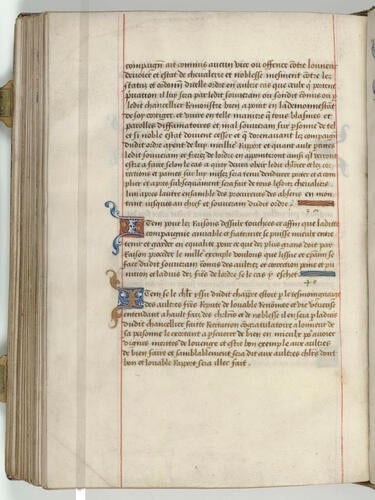 compaignon ait commis aucun vice ou offence contre honneur
devoir et estat de chevalerie et noblesse mesment contre les
statuz et ordonn diceulle ordre en aultre cas que ceulx q portent
privation il luy sera par ledit souverain ou sondit comis ou p
ledit chancellier remonstre bien a point en lad
de soy corriger et vivre en telle maniere q tous blasmes et
parolles diffamatoires et mal souverain sur psonne de tel
et si noble estat doivent cesser et q dorenavant les compaign
dudit ordre ayent de luy meilleur Rapport et quant aulx paines
ledit souverain et freres de lordre en appointeront ainsi ql verront
estre a faire selon le cas a quoy devra obeir ledit chlr et les cor
rections et paines sur luy mises sera tenu dendurer porter et acom
plir et apres subsequamment sera fait de tous lesdits chevaliers
lun apres lautre ensemble des procureurs des absens en mon
tant jusques au chief et souverain dudit ordre
Item pour les Raisons dessus touchees et affin que ladicte
compaignie amiable et fraternite se puisse mieulx entre
tenir et garder en equalite pour ce que des plus grans doit par
Raison proceder le meilleur exemple voulons que lissue et examen se
face dudit souverain comme des aultres et correction paine et pu
nition a ladvis des freres de lordre se le cas y eschet
Item se le chlr yssu dudit chapitre estoit p le tesmoignaige
des aultres freres Repute de louable Renommee et de vertueuse
entendant a hault fais de chlrie et de noblesse il en sera p ladvis
dudit chancellier faicte Recitation congratulatoire a lonneur de
sa personne le exortant a pseverer de bien en mieulx po avoir
dignes merites de louenge et estre bon exemple aux aultres
de bien faire et samblablement sera dit aux aultres chlrs dont
bon et louable Rapport sera illec fait